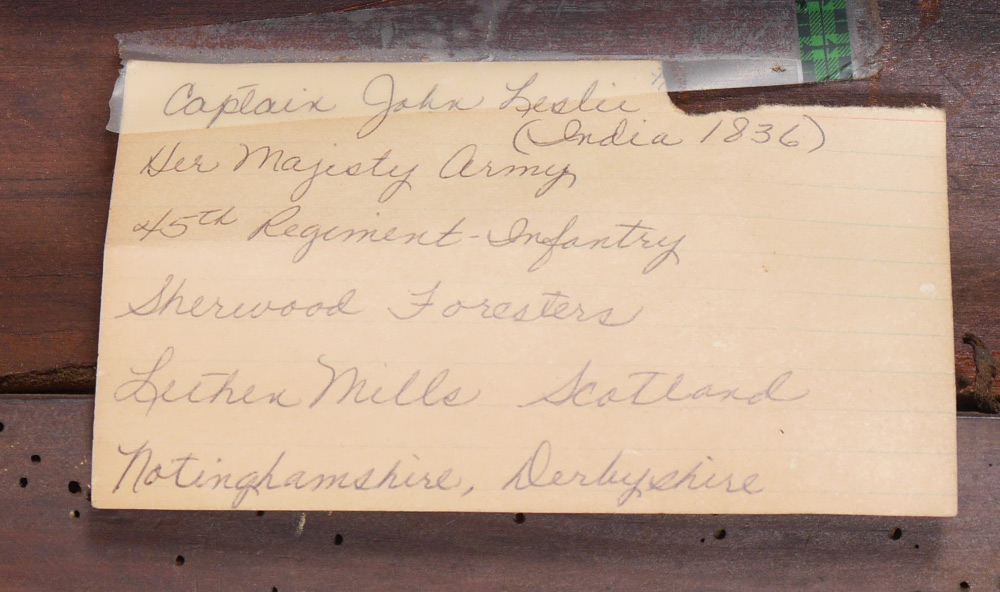 Captain John Leslie
(India 1836)
Her Majisty Army
45th Regiment-Infantry
Sherwood Foresters
Lethen Mills Scotland
Notinghamshire, Derbyshire